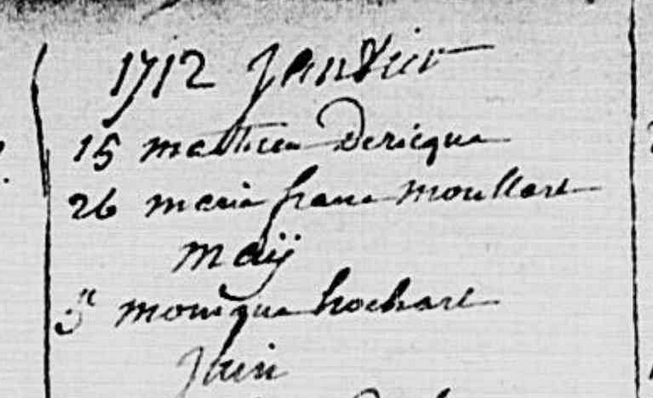 1712 Janvier
15 mathieu Dericque
26 marie franc moullart
maÿ
5 monique hochart
Juin